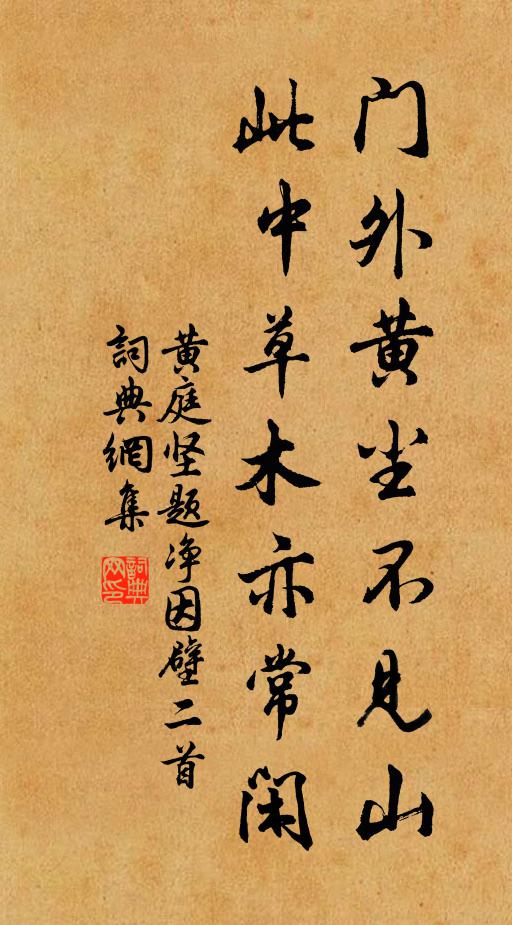 门外黄尘不见山
此中草木亦常闲
黄庭坚题净因壁二首
詞典網集
詞典网印